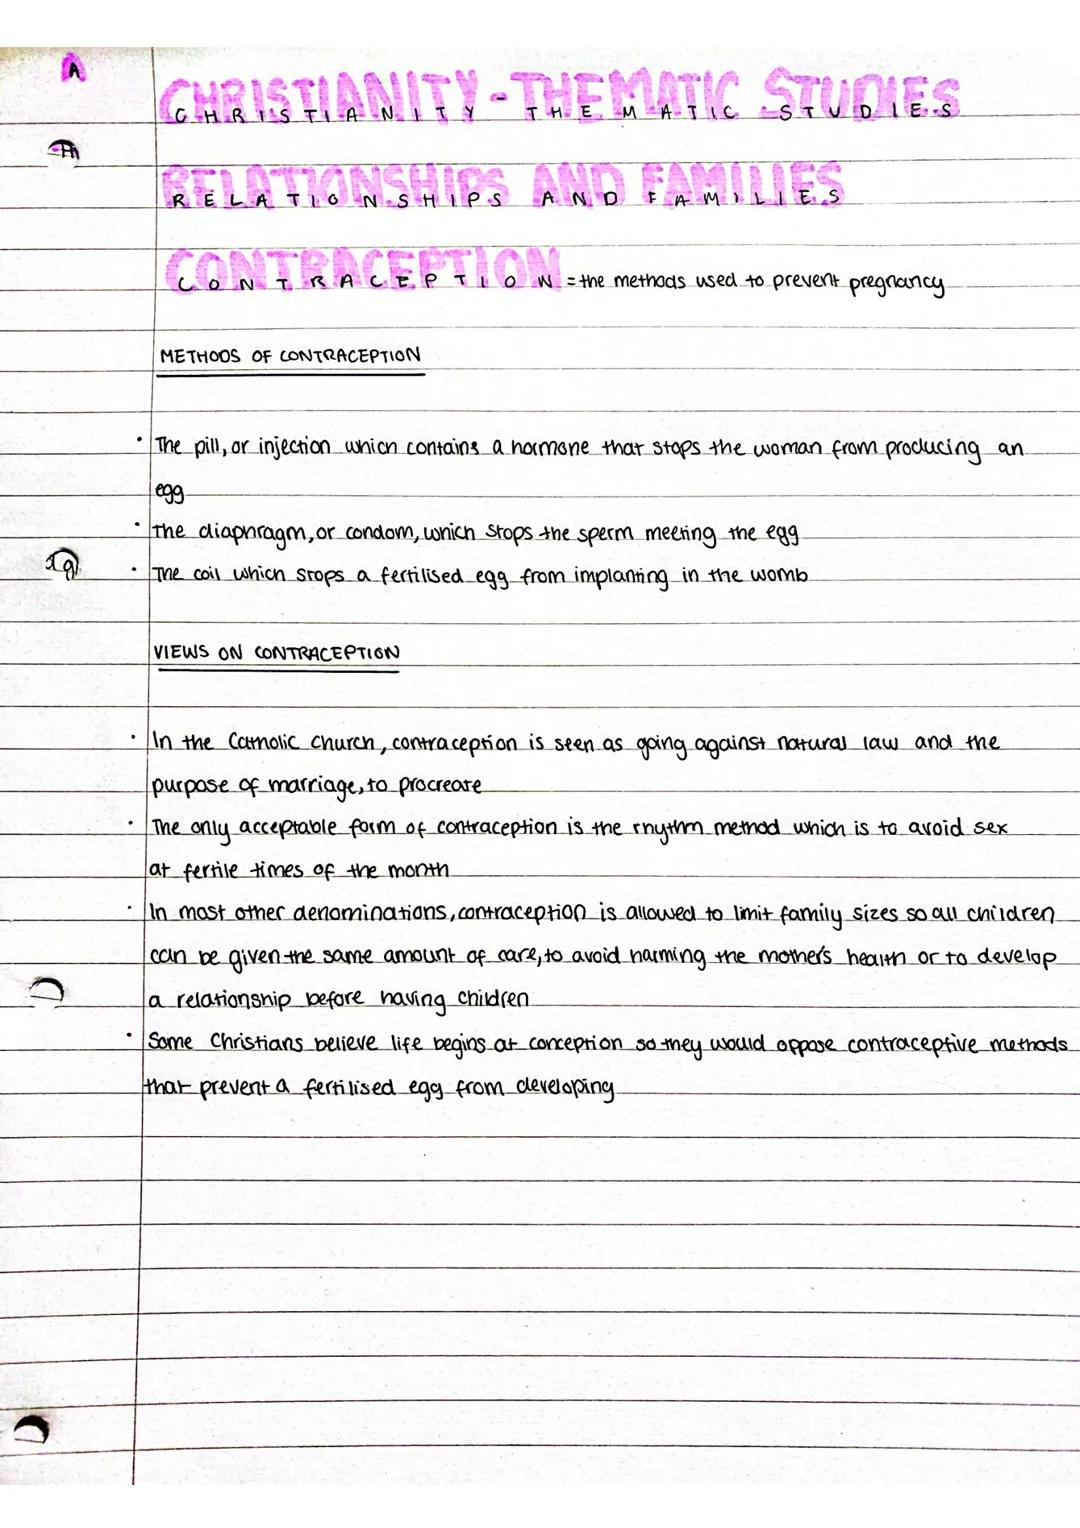 A
CHRISTIANITY-THEMATIC STUDIES
CHRISTIANITY - THEMATIC STUDIES
RELATIONSHIPS AND FAMILIES
RELATIONSHIPS AND FAMILIES
CONTRACEPTION
CONTRACEPTION = the methods used to prevent pregnancy
METHODS OF CONTRACEPTION
· The pill, or injection which contains a hormone that stops the woman from producing an
egg
· The diaphragm, or condom, which stops the sperm meeting the egg
· The coil which stops a fertilised egg from implanting in the womb
VIEWS ON CONTRACEPTION
· In the Catholic church, contraception is seen as going against natural law and the
purpose of marriage, to procreate
· The only acceptable form of contraception is the rhythm method which is to avoid sex
at fertile times of the month
· In most other denominations, contraception is allowed to limit family sizes so all children
can be given the same amount of care, to avoid harming the mother's health or to develop
a relationship before having children
· Some Christians believe life begins at conception so they would oppose contraceptive methods
that prevent a fertilised egg from developing